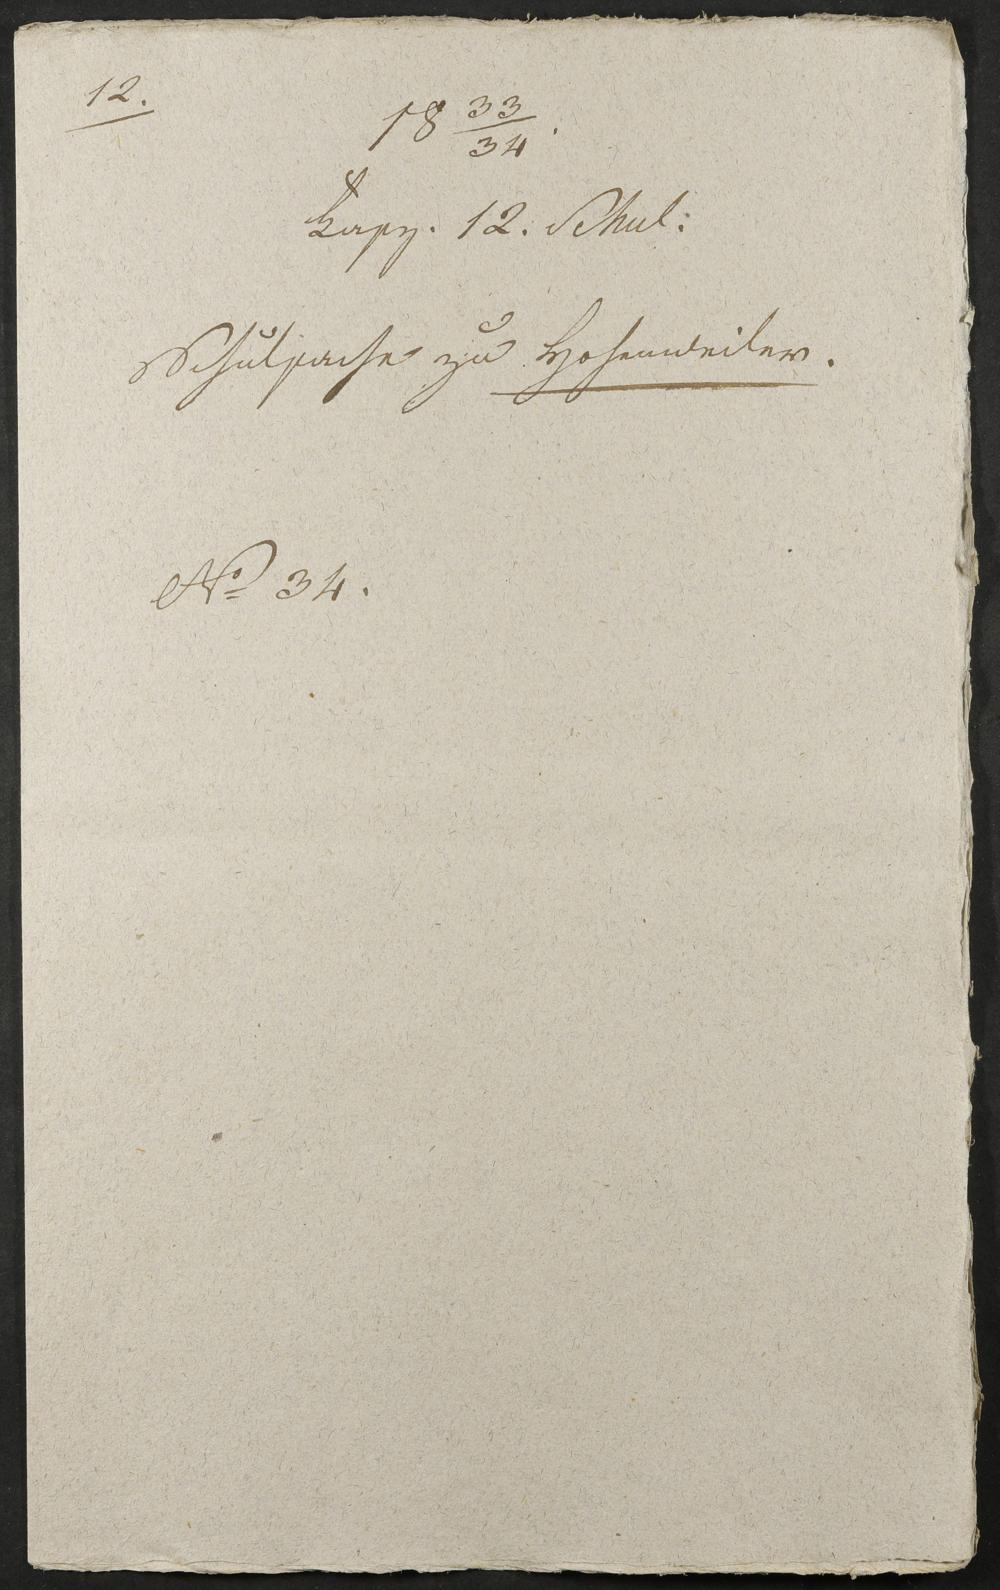 12.
18 33/34.
Kapz. 12. Schul:
Schulsache zu Hohenweiler.
No 34.